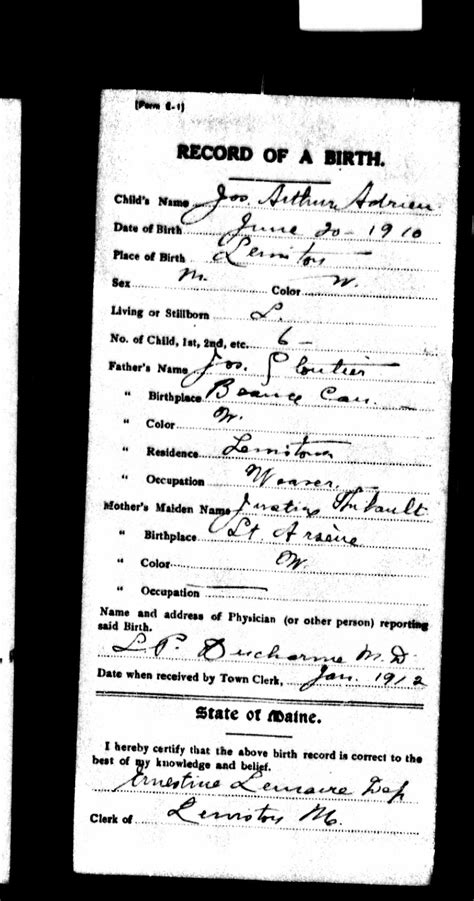 [Form E-1]
RECORD OF A BIRTH.
Child's Name Jos. Arthur Adrien
Date of Birth June 20 - 1910
Place of Birth Lewiston
Sex M. Color W.
Living or Stillborn L.
No. of Child, 1st, 2nd, etc. 6 -
Father's Name Jos. Cloutier
" Birthplace Beauce Can.
" Color W.
" Residence Lewiston
" Occupation Weaver
Mother's Maiden Name Thibault
" Birthplace St. Arsène
" Color W.
" Occupation
Name and address of Physician (or other person) reporting
said Birth.
L. P. Ducharme M. D
Date when received by Town Clerk, Jan. 1912
State of Maine.
I hereby certify that the above birth record is correct to the
best of my knowledge and belief.
Ernestine Lemaire Dep
Clerk of Lewiston Me.